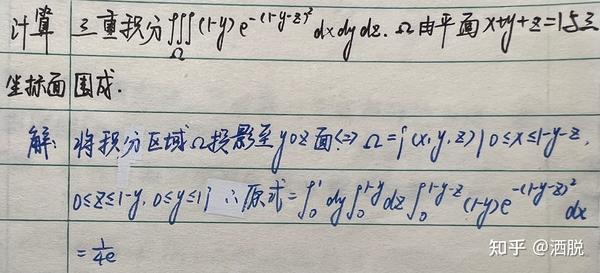 计算 三重积分∭_Ω (1-y)e^{-(1-y-z)²} dxdydz. Ω由平面x+y+z=1与三
坐标面围成.
解: 将积分区域Ω投影至yoz面⇔Ω={(x,y,z)|0≤x≤1-y-z,
0≤z≤1-y, 0≤y≤1} ∴原式=∫₀¹dy∫₀^{1-y}dz∫₀^{1-y-z}(1-y)e^{-(1-y-z)²}dx
=1/4e
知乎 @洒脱